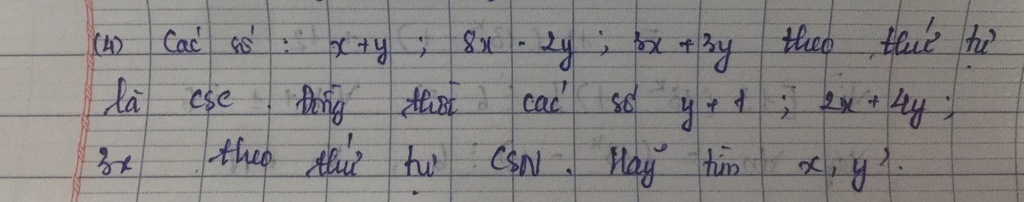 (4) Các số : x+y ; 8x - 2y ; 3x + 3y theo thứ tự
là CSC. Đồng thời các số y + 1 ; 2x + 4y ;
3x theo thứ tự CSN. Hãy tìm x, y ?.